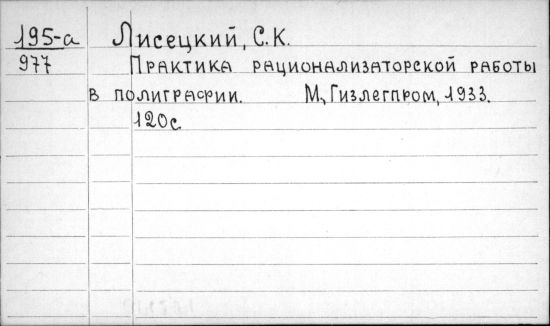 195-а Лисецкий, С.К.
977 Практика рационализаторской работы
в полиграфии. М., Гизлегпром, 1933.
120с.